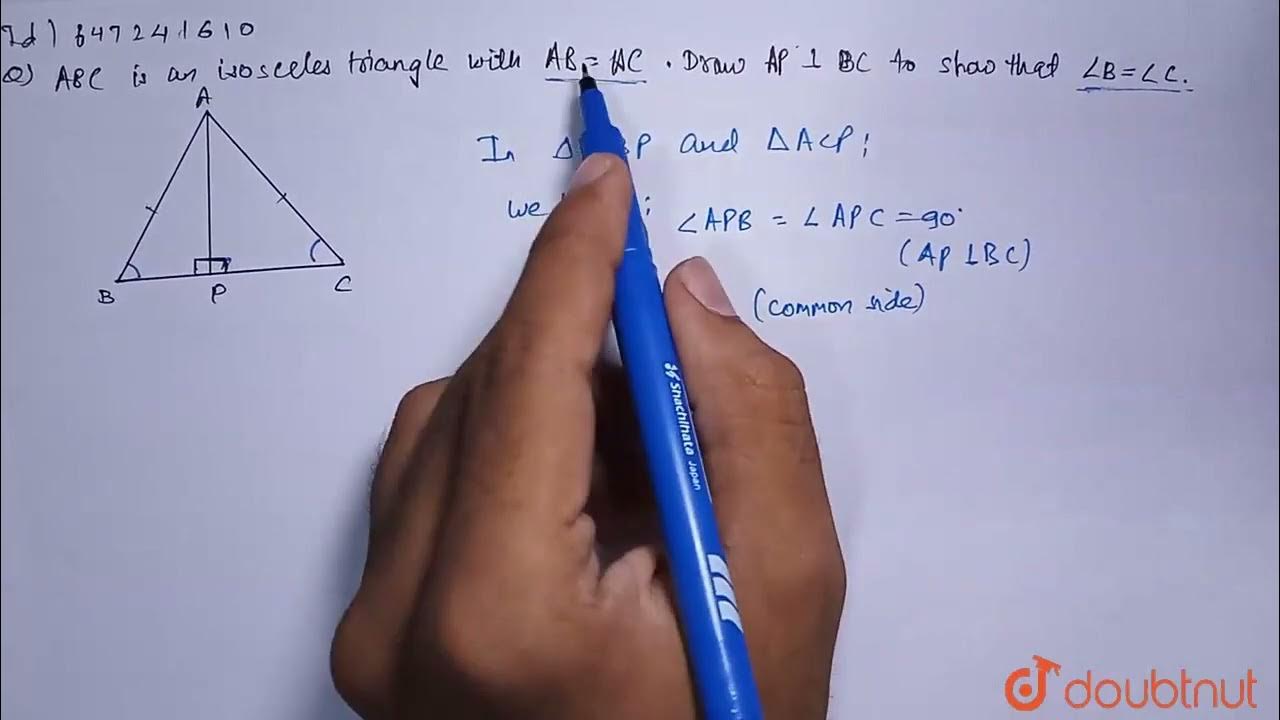 Id) 647241610
Q) ABC is an isosceles triangle with AB = AC . Draw AP ⊥ BC to show that ∠B = ∠C.
A
B
P
C
In Δ P and Δ ACP ;
we ; ∠APB = ∠APC = 90°
(AP ⊥ BC)
(common side)
Shachihata Japan
doubtnut